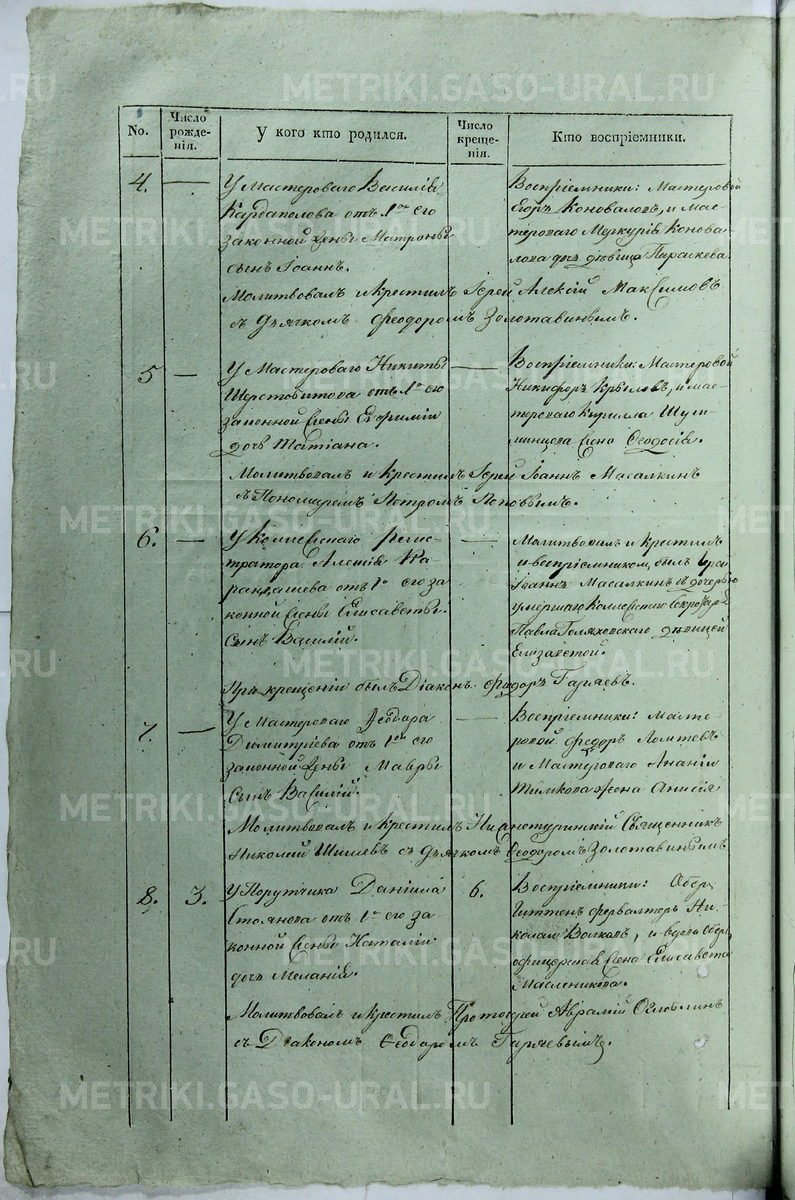 No.
Число рожде-
нія.
У кого кто родился.
Число креще-
нія.
Кто воспріемники.
4.
У Мастероваго Василія
Кардаполова отъ 1ой его
законной жены Матроны
сынъ Іоаннъ.
Воспріемники: Мастеровой
Егоръ Коноваловъ, и мас-
тероваго Меркурія Конова-
лова дочь дѣвица Параскева
Молитвовалъ и крестилъ Іерей Алексій Максимовъ
съ Дьячкомъ Феодоромъ Золотавинымъ.
5
У Мастероваго Никиты
Шерстобитова отъ 1ой его
законной жены Евфиміи
дочь Татіана.
Воспріемники: Мастеровой
Никифоръ Крыловъ, и мас-
тероваго Кирилла
жена Ѳеодосія.
Молитвовалъ и крестилъ Іерей Іоаннъ Масалкинъ
съ Пономаремъ Петромъ Поповымъ.
6.
У Коллежскаго Регис-
тратора Алексія Ка-
рандашева отъ 1ой его за
конной жены Елисаветы
Сынъ Василій.
Молитвовалъ и крестилъ
и воспріемникомъ былъ Іерей
Іоаннъ Масалкинъ съ дочерью
умершаго Коллежскаго Секретаря
Павла Голяховскаго дѣвицей
Елизаветой.
При крещеніи былъ Діаконъ Феодоръ Гаряевъ.
7.
У Мастероваго Феодора
Димитріева отъ 1ой его
законной жены Мавры
Сынъ Василій.
Воспріемники: Масте-
ровой Федоръ Ломтевъ
и Мастероваго Ананіи
жена Анисія
Молитвовалъ и крестилъ Нижнетуринскій Священникъ
Николай Шишевъ съ Дьячкомъ Ѳеодоромъ Золотавинымъ
8.
3.
У Порутчика Даніила
Стоянова отъ 1ой его за
конной жены Наталіи
дочь Меланія.
6.
Воспріемники: Оберъ
Гиттенъ фервалтеръ Ни-
колай Волковъ, и вдова Оберъ
офицерская жена Елисавета
Масленикова.
Молитвовалъ и крестилъ Протоіерей Авраамій Оглоблинъ
съ Діакономъ Ѳеодоромъ Гаряевымъ.
METRIKI.GASO-URAL.RU